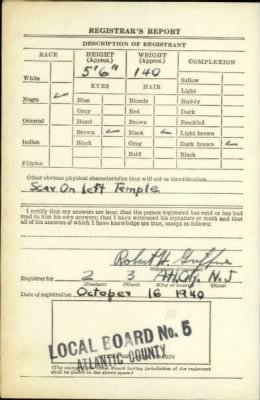 REGISTRAR'S REPORT
DESCRIPTION OF REGISTRANT
RACE HEIGHT (Approx.) WEIGHT (Approx.) COMPLEXION
5'6" 140
White Sallow
EYES HAIR Light
Negro Blue Blonde Ruddy
Gray Red Dark
Oriental Hazel Brown Freckled
Brown Black Light brown
Indian Black Gray Dark brown
Bald Black
Filipino
Other obvious physical characteristics that will aid in identification
Scar On Left Temple
I certify that my answers are true; that the person registered has read or has had
read to him his own answers; that I have witnessed his signature or mark and that
all of his answers of which I have knowledge are true, except as follows:
Robert H. Griffin
Registrar for 2 3 Atl. City. N. J
(Precinct) (Ward) (City or county) (State)
Date of registration October 16 1940
LOCAL BOARD No. 5
ATLANTIC COUNTY
(The stamp of the Local Board having jurisdiction of the registrant
shall be placed in the above space.)